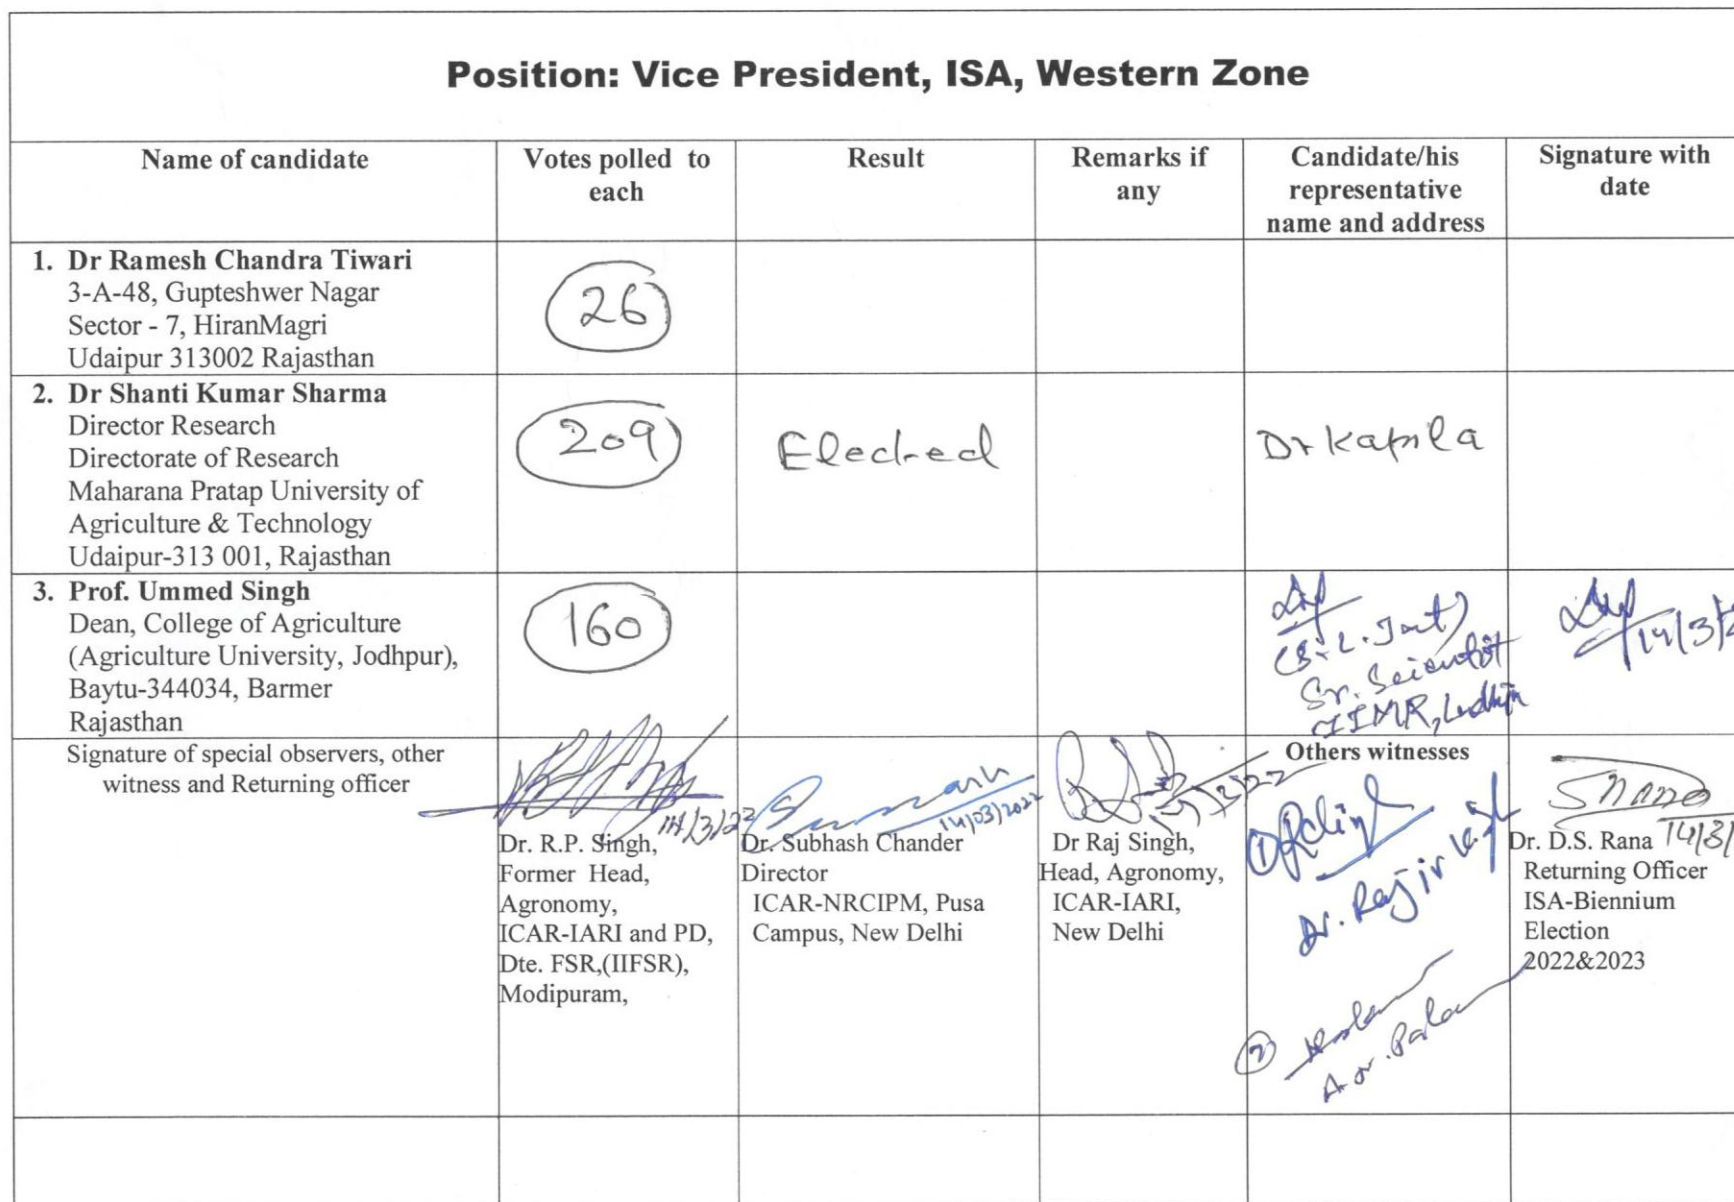 Position: Vice President, ISA, Western Zone
Name of candidate
Votes polled to
each
Result
Remarks if
any
Candidate/his
representative
name and address
Signature with
date
1. Dr Ramesh Chandra Tiwari
3-A-48, Gupteshwer Nagar
Sector - 7, HiranMagri
Udaipur 313002 Rajasthan
26
2. Dr Shanti Kumar Sharma
Director Research
Directorate of Research
Maharana Pratap University of
Agriculture & Technology
Udaipur-313 001, Rajasthan
209
Elected
Dr Kapila
3. Prof. Ummed Singh
Dean, College of Agriculture
(Agriculture University, Jodhpur),
Baytu-344034, Barmer
Rajasthan
160
Sr. Scientist
IIMR,
14/3/2
Signature of special observers, other
witness and Returning officer
14/3/22
Dr. R.P. Singh,
Former Head,
Agronomy,
ICAR-IARI and PD,
Dte. FSR,(IIFSR),
Modipuram,
14/03/2022
Dr. Subhash Chander
Director
ICAR-NRCIPM, Pusa
Campus, New Delhi
Dr Raj Singh,
Head, Agronomy,
ICAR-IARI,
New Delhi
Others witnesses
1
Dr. Rajiv
2
14/3/
Dr. D.S. Rana
Returning Officer
ISA-Biennium
Election
2022&2023